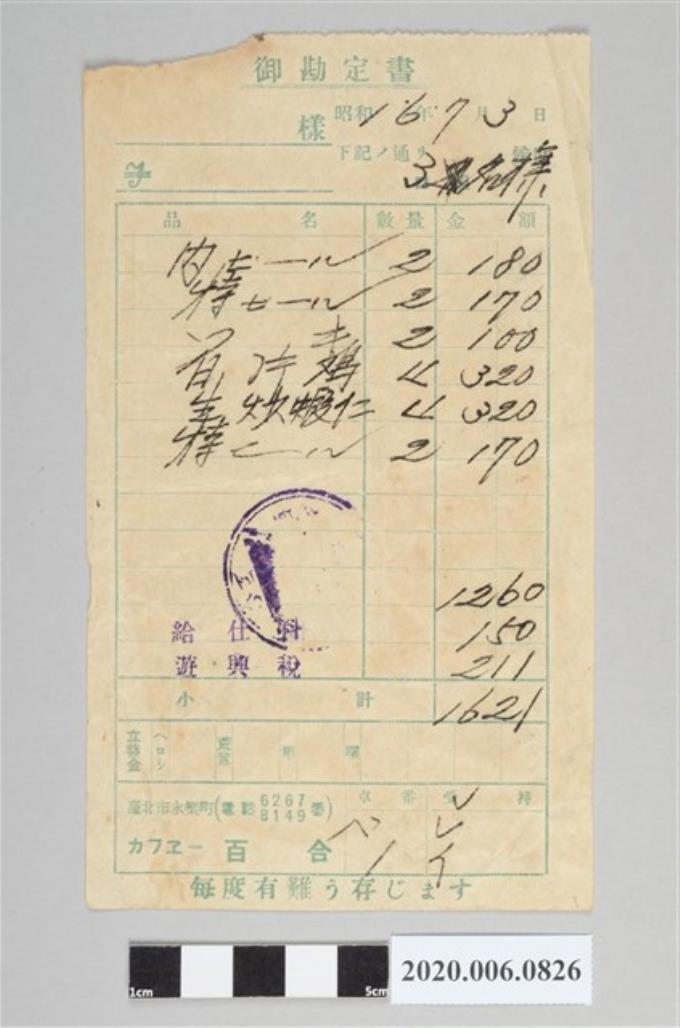 御勘定書
昭和16年7月3日
様
下記ノ通リ
3名様
品名 數量 金額
内ホール 2 180
特セール 2 170
2 100
4 320
炒蝦仁 4 320
特ビール 2 170
1260
給仕料 150
遊興税 211
小計 1621
立替金
臺北市永樂町(電話 6267 8149 番)
卓番 受持
カフヱー 百合
レイ
毎度有難う存じます
1cm 5cm
2020.006.0826